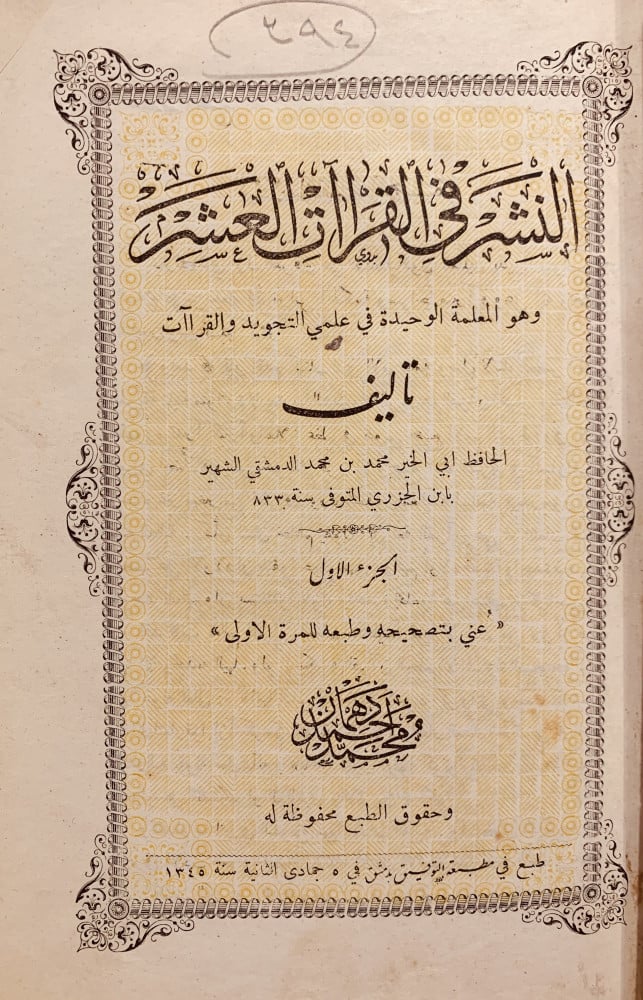 ٣٩٤
النشر في القراآت العشر
بدوي
وهو المعلمة الوحيدة في علمي التجويد والقراآت
تأليف
الحافظ ابي الخير محمد بن محمد الدمشقي الشهير
بابن الجزري المتوفى سنة ٨٣٣
الجزء الاول
« عُني بتصحيحه وطبعه للمرة الاولى »
محمد احمد دهمان
وحقوق الطبع محفوظة له
طبع في مطبعة التوفيق بدمشق في ٥ جمادى الثانية سنة ١٣٤٥